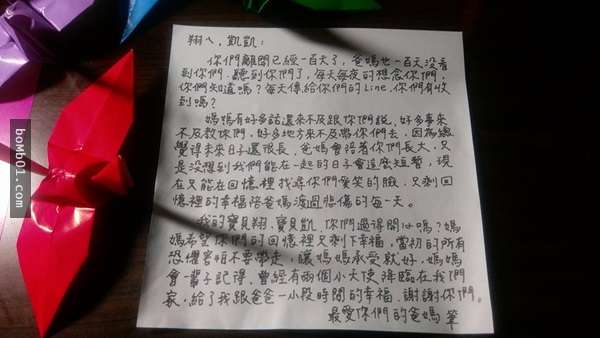 翔ㄟ,凱凱:
你們離開已經一百天了,爸媽也一百天沒看
到你們.聽到你們了,每天每夜的想念你們,
你們知道嗎?每天傳給你們的Line,你們有收
到嗎?
媽媽有好多話還來不及跟你們說,好多事來
不及教你們,好多地方來不及帶你們去,因為總
覺得未來日子還很長,爸媽會陪著你們長大.只
是沒想到我們能在一起的日子會這麼短暫,現
在只能在回憶裡找尋你們愛笑的臉.只剩回
憶裡的幸福陪爸媽渡過悲傷的每一天。
我的寶貝翔.寶貝凱.你們過得開心嗎?媽
媽希望你們的回憶裡只剩下幸福,當初的所有
恐懼害怕不要帶走,讓媽媽承受就好,媽媽
會一輩子記得.曾經有兩個小天使降臨在我們
家,給了我跟爸爸一小段時間的幸福.謝謝你們。
最愛你們的爸媽 筆
bomb01.com